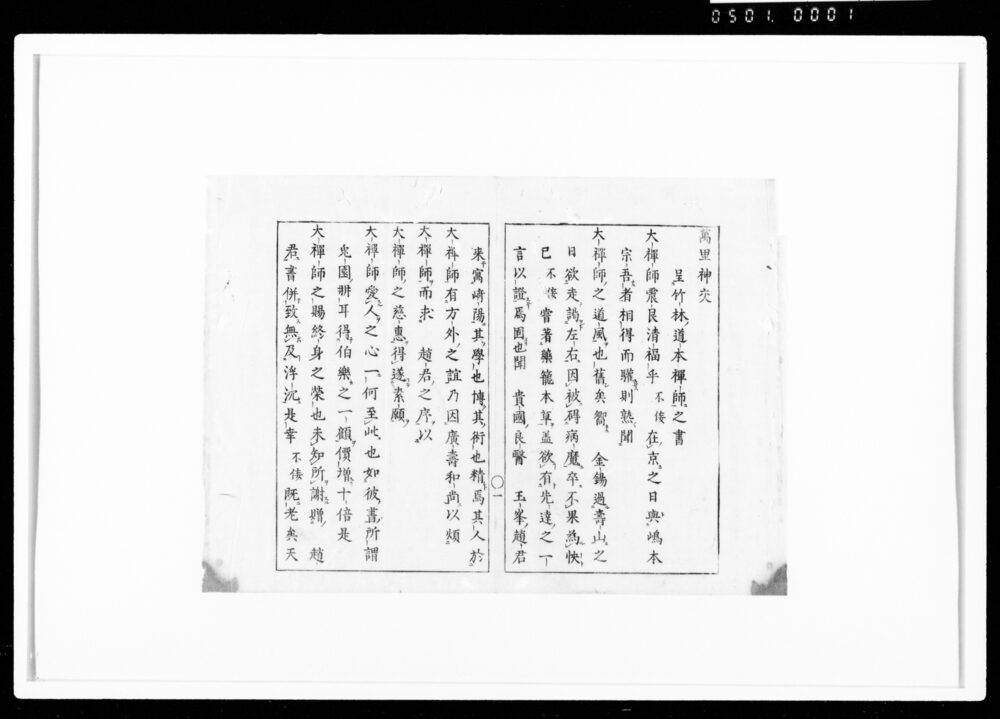 0501.0001
萬里神交
呈竹林道本禪師之書
大禪師震艮清福乎 不佞 在京之日與嶋本
宗吾者相得而驩則熟聞
大禪師之道風也舊矣嚮 金錫過壽山之
日欲走謁左右因被碍病魔卒不果為怏
已 不佞 嘗著藥籠本草盖欲有先達之一
言以證焉因也聞 貴國良醫 玉峯趙君
來寓崎陽其學也博其術也精焉其人於
大禪師有方外之誼乃因廣壽和尚以煩
大禪師而求 趙君之序以
大禪師之慈惠得遂素願
大禪師愛人之心一何至此也如彼書所謂
兎園冊耳得伯樂之一顧價增十倍是
大禪師之賜終身之榮也未知所謝贈 趙
君書併致無及浮沉是幸 不佞 既老矣天
〇一